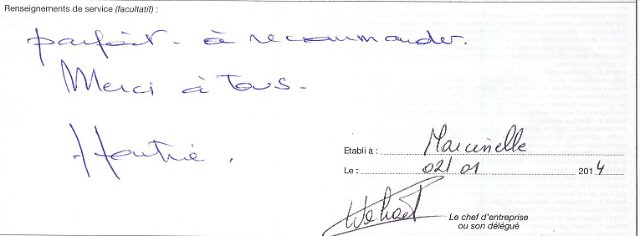 Renseignements de service (facultatif) :
parfait - à recommander.
Merci à tous.
Etabli à : Marcinelle
Le : 02/01 2014
Le chef d'entreprise
ou son délégué